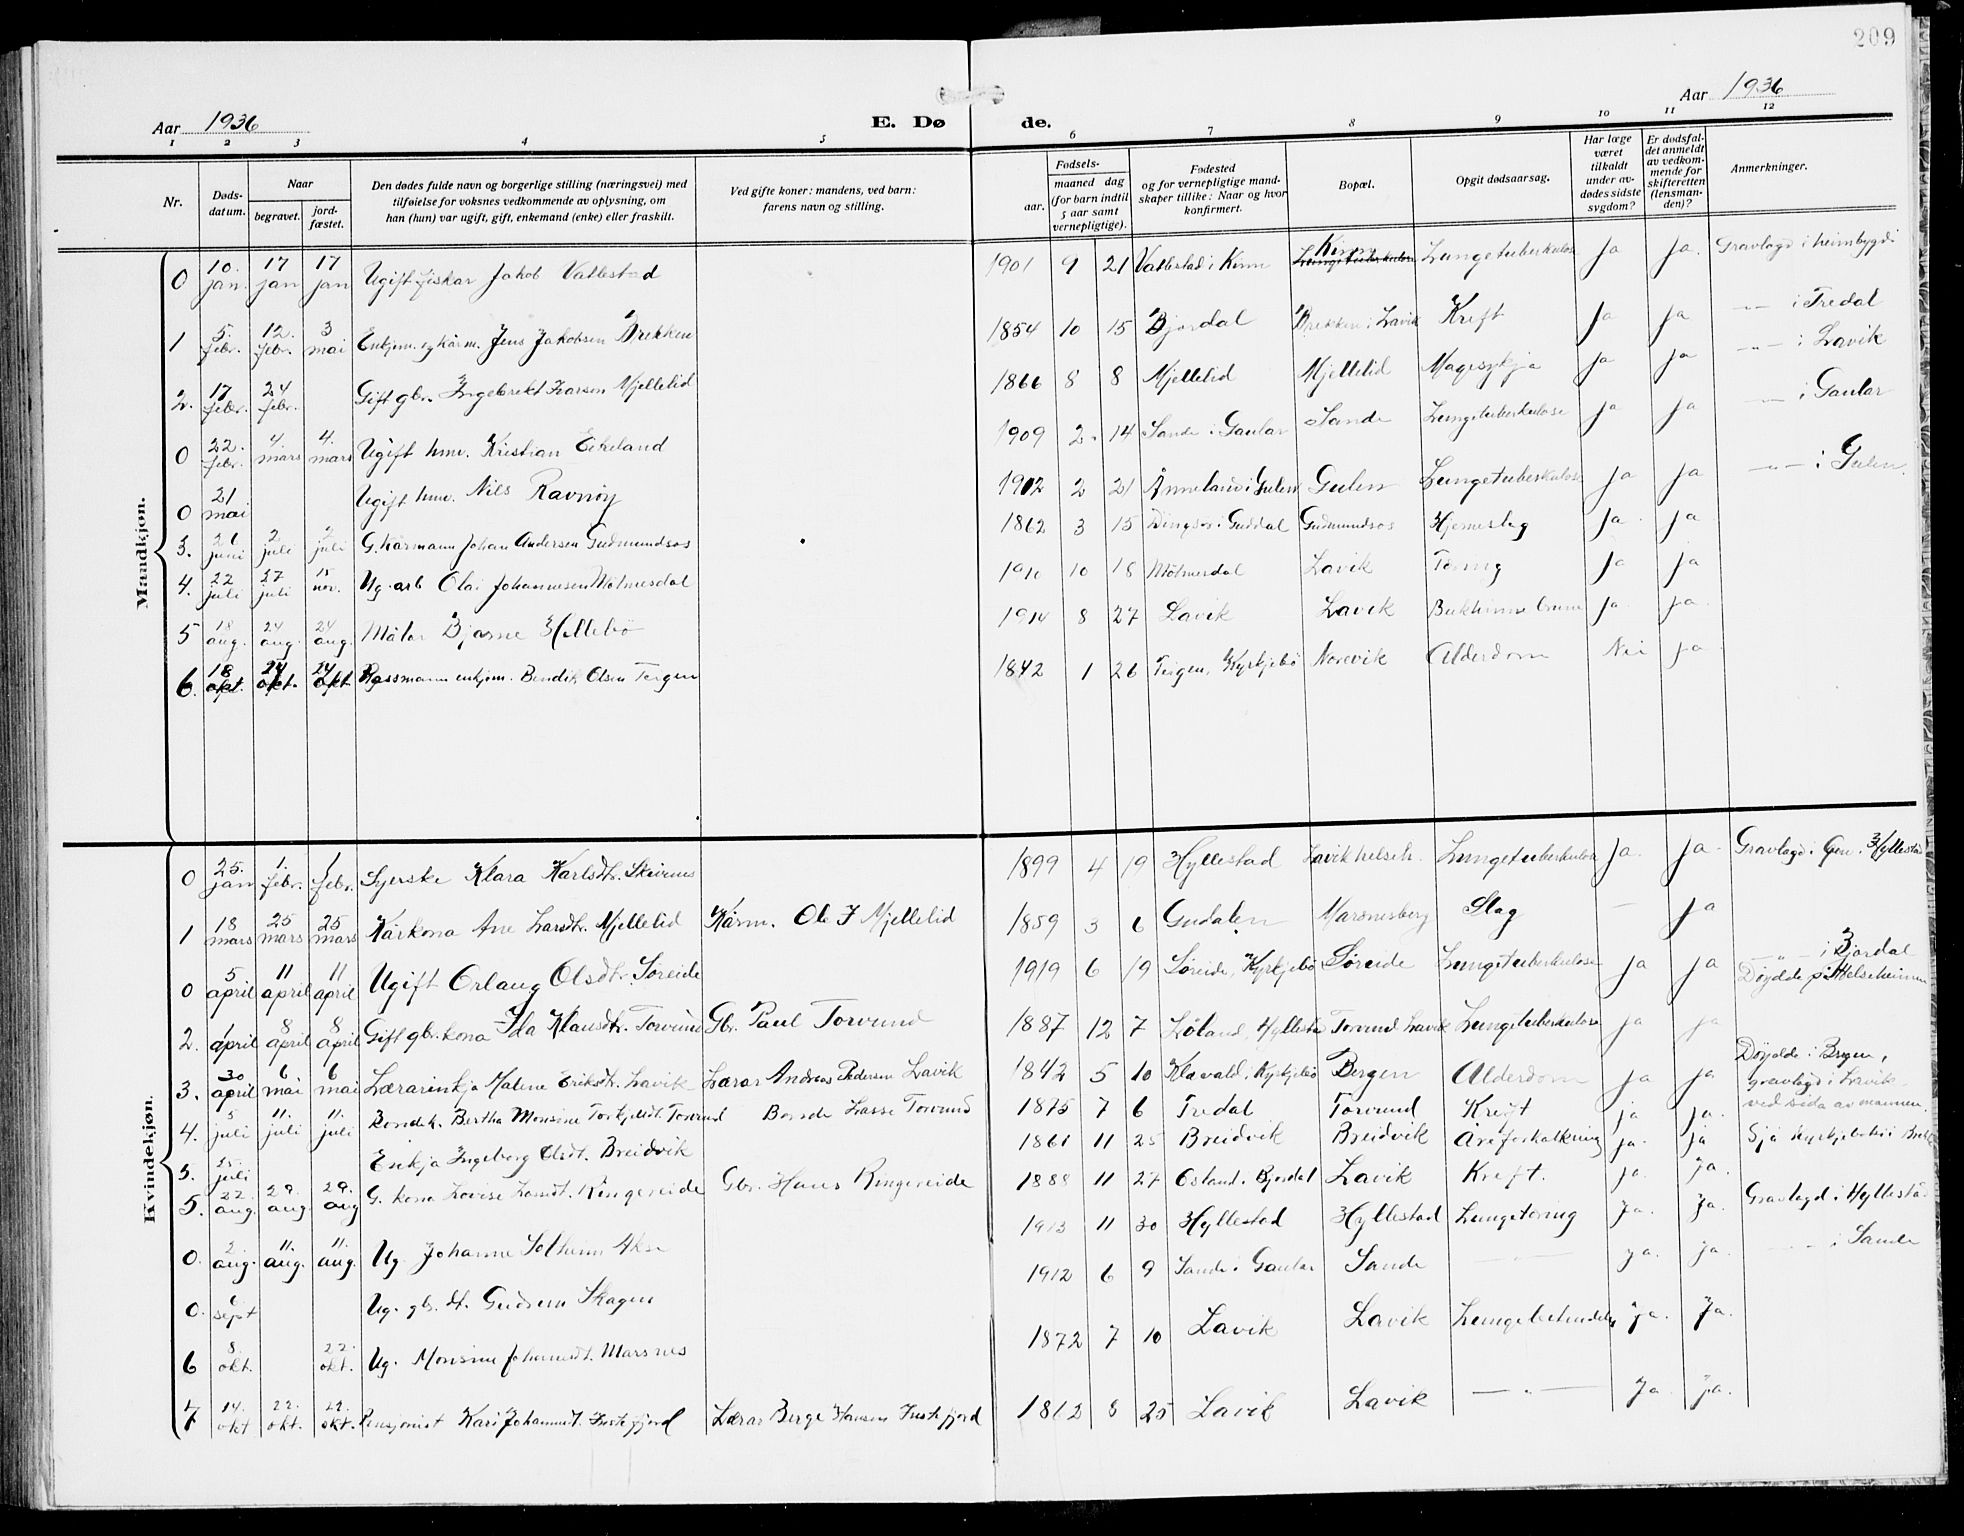 209
Aar 1936
E. Dø de.
Aar 1936
1 2 3 4 5 6 7 8 9 10 11 12
Nr.
Døds-
datum.
Naar
begravet.
jord-
fæstet.
Den dødes fulde navn og borgerlige stilling (næringsvei) med
tilføielse for voksnes vedkommende av oplysning, om
han (hun) var ugift, gift, enkemand (enke) eller fraskilt.
Ved gifte koner: mandens, ved barn:
farens navn og stilling.
Fødsels-
aar.
maaned dag
(for barn indtil
5 aar samt
vernepligtige).
Fødested
og for vernepligtige mand-
skaper tillike: Naar og hvor
konfirmert.
Bopæl.
Opgit dødsaarsag.
Har læge
været
tilkaldt
under av-
dødes sidste
sygdom?
Er dødsfal-
det anmeldt
av vedkom-
mende for
skifteretten
(lensman-
den)?
Anmerkninger.
Mandkjøn.
0 10. jan. 17 jan 17 jan Ugift fiskar Jakob Vallestad 1901 9 21 Vallestad i Kinn Kinn Lungetuberkulose Ja Ja. Gravlagd i heimbygdi
1 5. febr. 12. febr. 3 mai Enkjem. og kårm. Jens Jakobsen Brekken 1854 10 15 Bjordal Brekken i Lavik Kreft Ja Ja —"— i Tredal
2. 17 febr. 24 febr. Gift gbr. Ingebrikt Larsen Mjellelid 1866 8 8 Mjellelid Mjellelid Magesykja Ja Ja —"— i Lavik
0 22. febr. 4. mars 4. mars Ugift hmv. Kristian Eikeland 1909 2. 14 Sande i Gaular Sande Lungetuberkulose Ja Ja —"— i Gaular
0 21 mai Ugift hmv. Nils Ravnøy 1902 2 21 Ånneland i Gulen Gulen Lungetuberkulose Ja Ja —"— i Gulen.
3. 21 juni 2 juli 2 juli G. Kårmann Johan Andersen Gudmundsos 1862 3 15 Dingsør i Guddal Gudmundsos Hjerneslag Ja. Ja
4. 22 juli 27 juli 15 nov. Ug. arb Olai Johannesen Mölmesdal 1910 10 18 Mölmesdal Lavik Tæring Ja Ja
5 18 aug. 24 aug. 24 aug. Målar Bjarne Hellebø 1914 8 27 Lavik Lavik Ja. Ja.
6. 18 okt. 24 okt. 24 okt. Plassmann enkjem. Bendik Olsen Teigen 1842 1 26 Teigen, Kyrkjebø Norevik Alderdom Nei Ja.
Kvindekjøn.
0 25. jan 1. febr. 1 febr. Syerske Klara Karlsdtr. Skivenes 1899 4 19 Hyllestad Lavik helseh. Lungetuberkulose Ja. Ja. Gravlagd i Øen i Hyllestad
1 18 mars 25 mars 25 mars Kårkona Ane Larsdtr. Mjellelid Kårm. Ole I Mjellelid 1859 3 6 Gudalen Marsnesberg Slag — Ja
0 5 april 11 april 11 april Ugift Orlaug Olsdtr. Søreide 1919 6 19 Søreide, Kyrkjebø Søreide Lungetuberkulose Ja Ja —"— i Bjordal Døydde på Helseheimen
2. 1 april 8 april 8 april Gift gbr. kona Ida Klausdtr. Torvund Gbr. Paul Torvund 1887 12 7 Løland, Hyllestad Torvund Lavik Lungetuberkulose Ja Ja
3. 30 april 6 mai 6 mai Lærarinkja Malene Eriksdtr. Lavik Lærar Andreas Pedersen Lavik 1842 5 10 Klævold, Kyrkjebø Bergen Alderdom Ja Ja Døydde i Bergen, gravlagd i Lavik ved sida av mannen.
4. 5 juli 11. juli 11. juli Bondek. Bertha Monsine Torkjelsdt. Torvund Bonde Lasse Torvund 1875 7 6 Tredal Torvund Kreft ja ja.
5. 25 juli Enkja Ingeborg Olsdt. Breidvik 1861 11 25 Breidvik Breidvik Åreforkalkning Ja. Ja Sjå Kyrkjebok i Brekke
5. 22. aug. 29. aug. 29. aug G. kona Lovise Larsdt. Ringereide Gbr. Hans Ringereide 1888 11 27 Østand i Bjordal Lavik Kreft. Ja. Ja.
0. 2. aug. 11. aug. 11. aug. Ug. Johanne Solheim 1913 11 30 Hyllestad Hyllestad Lungetæring Ja. Ja. Gravlagd i Hyllestad
0. 6 sept Ug. gbr. dt. Gudrun Skagen 1912 6 9 Sande i Gaular Sande —"— Ja. Ja. —"— i Sande
6 8. okt. 22. okt. Ug. Monsine Johannesdt. Marsnes 1872 7 10 Lavik Lavik Lungebetendelse Ja. Ja.
7 14. okt 22. okt. 22. okt. Pensjonist Kari Johannesdt. Instefjord Lærar Berge Hansen Instefjord 1862 8 25 Lavik Lavik —"— Ja. Ja.